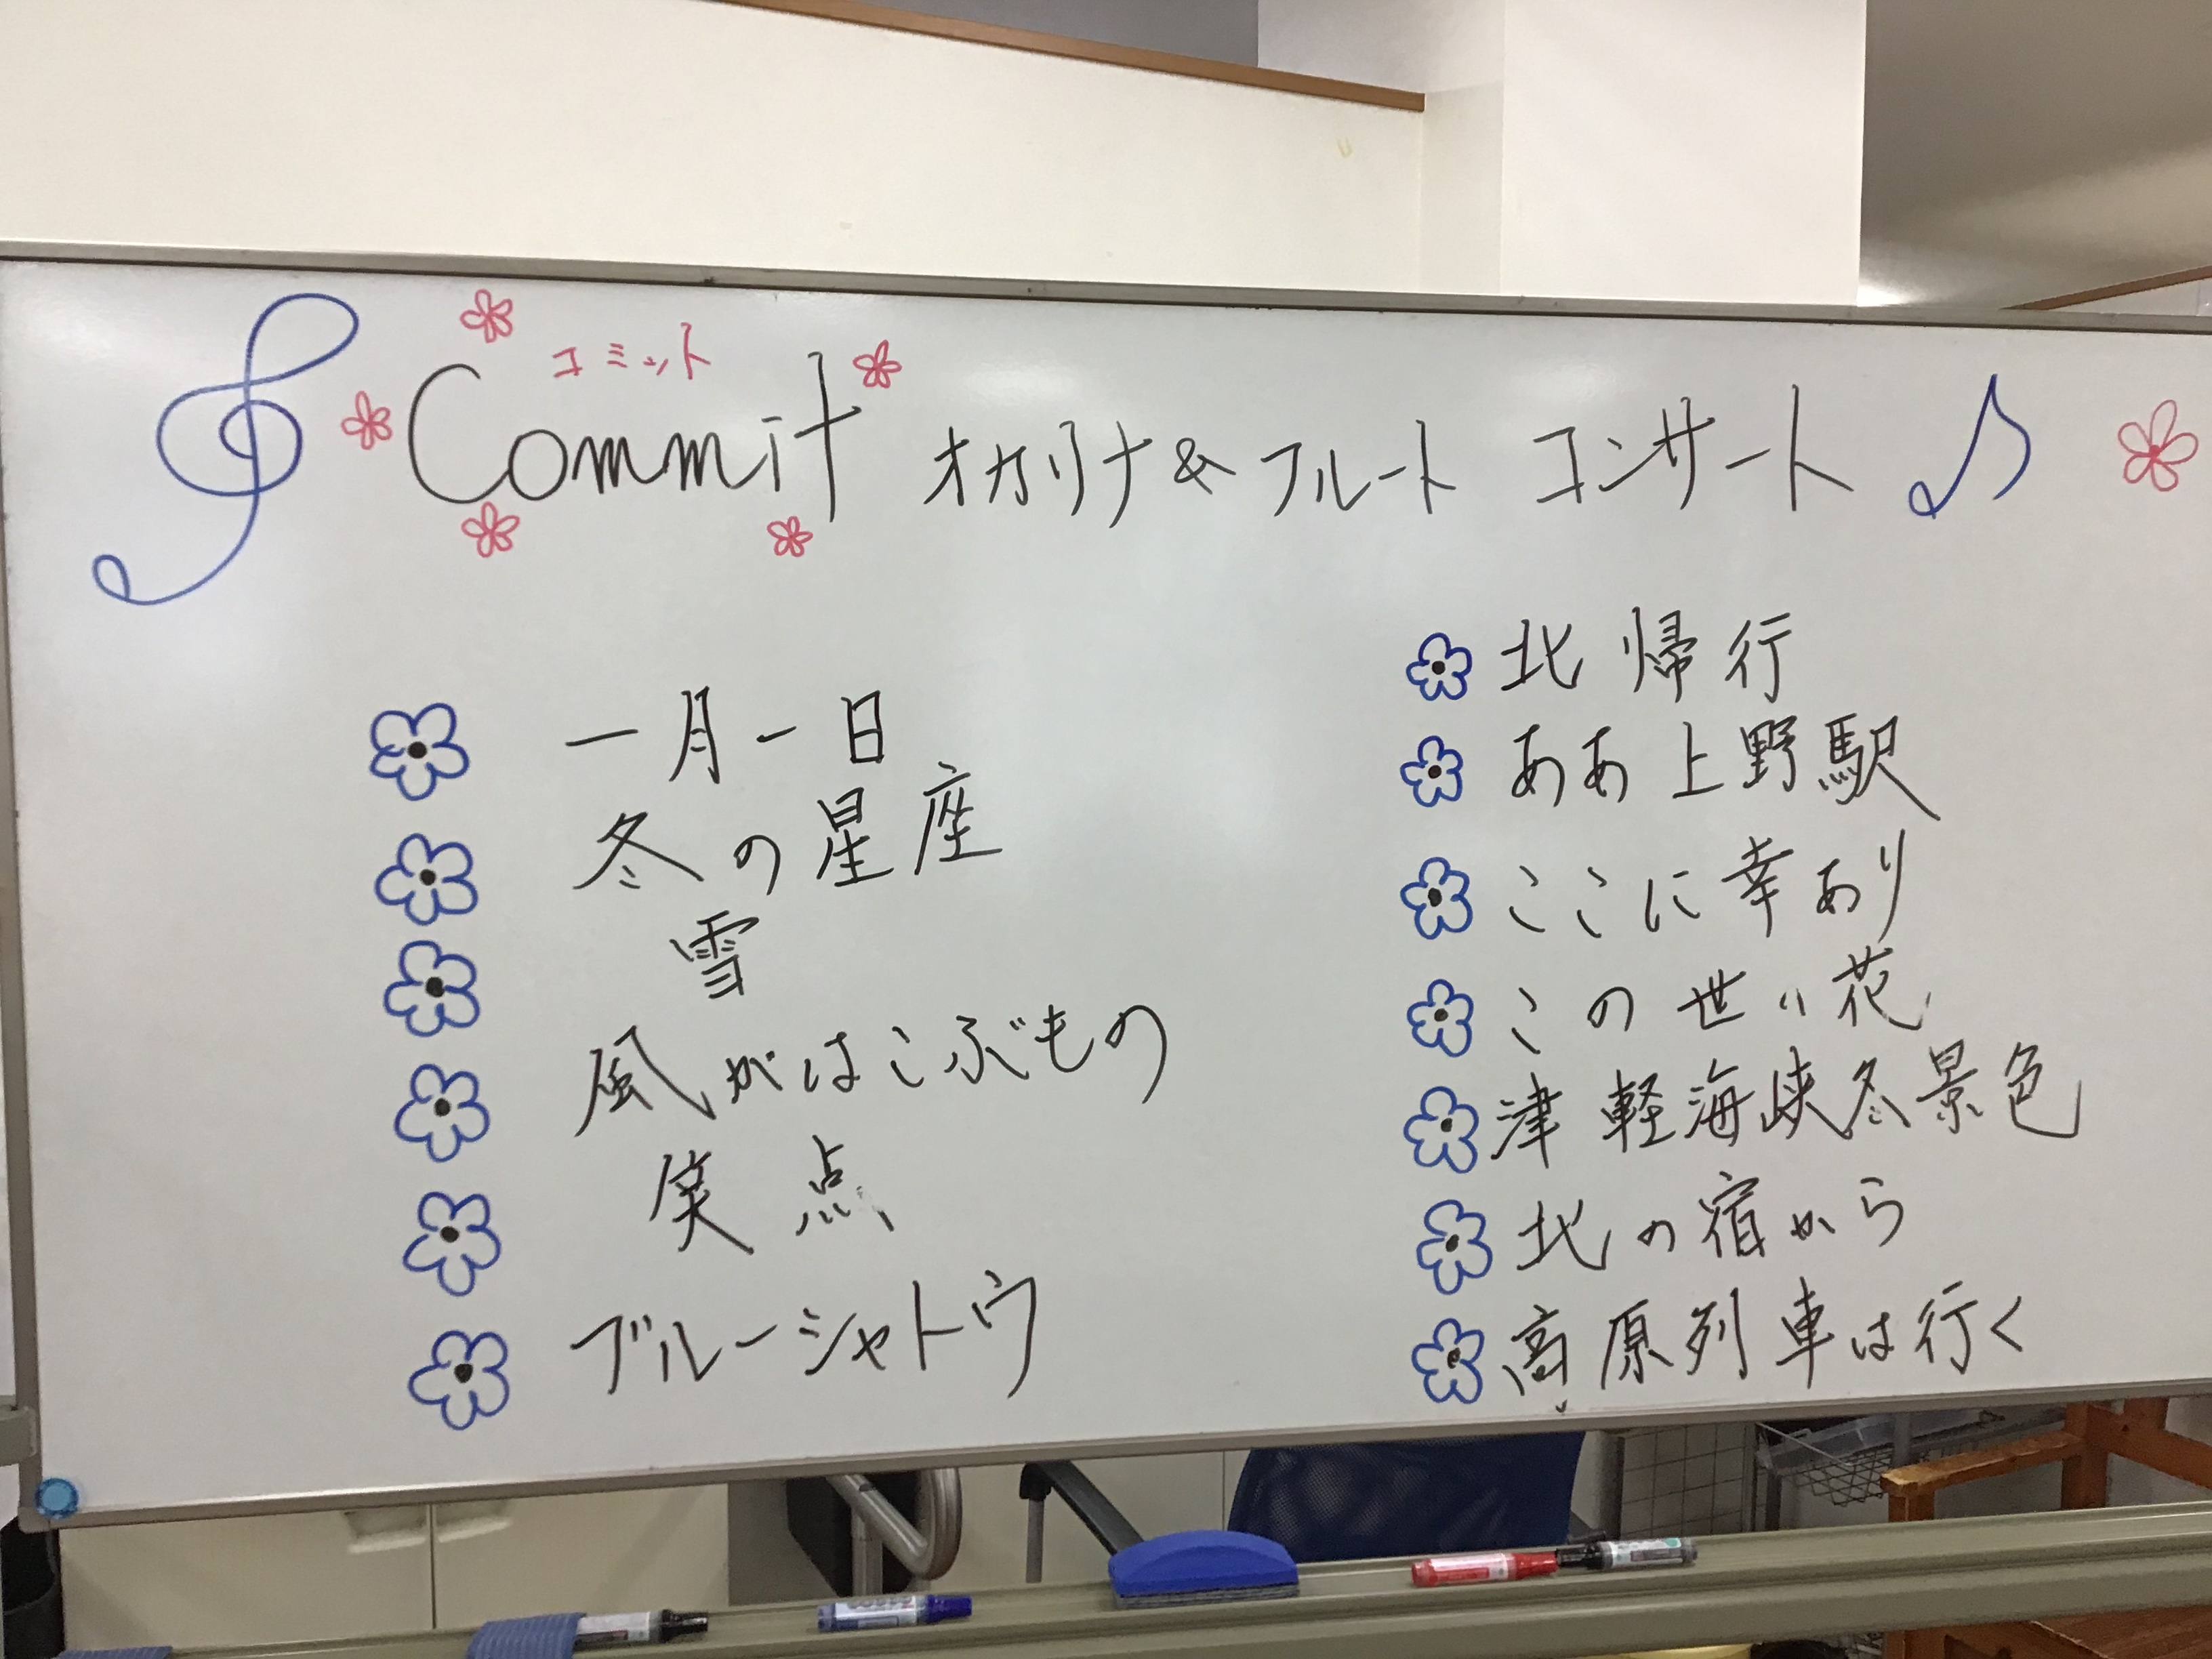 コミット
Commit オカリナ&フルート コンサート
一月一日
冬の星座
雪
風がはこぶもの
笑点
ブルーシャトウ
北帰行
ああ上野駅
ここに幸あり
この世の花
津軽海峡冬景色
北の宿から
高原列車は行く